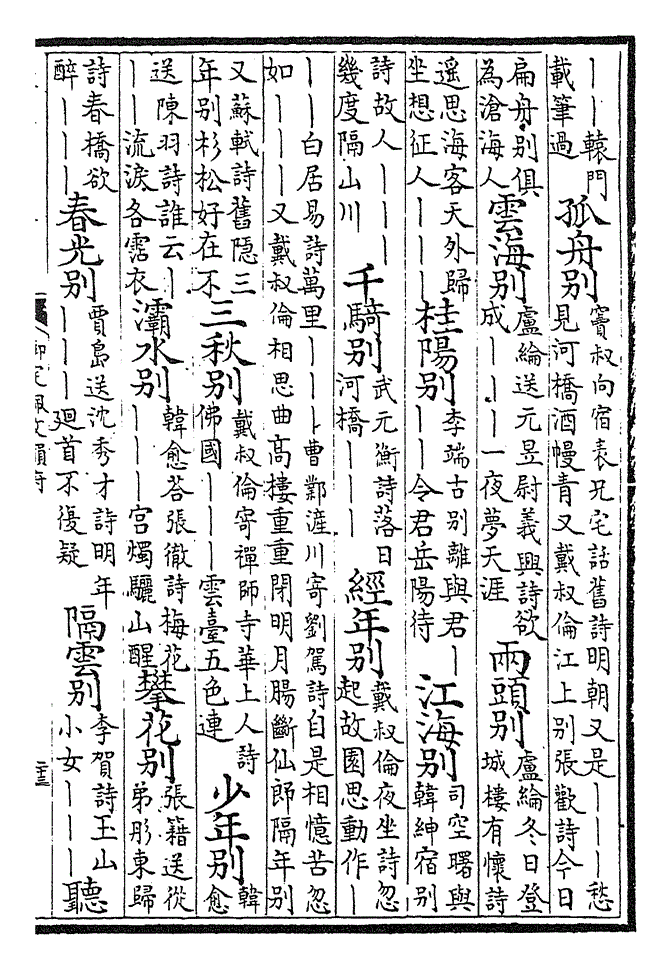 ——轅門
載筆過
孤舟別
竇叔向宿表兄宅話舊詩明朝又是———愁
見河橋酒幔青又戴叔倫江上別張歡詩今日
扁舟別俱
為滄海人
雲海別
盧綸送元昱尉義興詩欲
成———一夜夢天涯
兩頭別
盧綸冬日登
城樓有懷詩
遥思海客天外歸
坐想征人———
桂陽別
李端古別離與君—
——令君岳陽待
江海別
司空曙與
韓紳宿別
詩故人———
幾度隔山川
千騎別
武元衡詩落日
河橋———
經年別
戴叔倫夜坐詩忽
起故園思動作—
——白居易詩萬里———曹鄴漼川寄劉駕詩自是相憶苦忽
如———又戴叔倫相思曲高樓重重閉明月腸斷仙郎隔年別
又蘇軾詩舊隱三
年別杉松好在不
三秋別
戴叔倫寄禪師寺華上人詩
佛國———雲臺五色連
少年別
韓
愈
送陳羽詩誰云—
——流淚各霑衣
灞水別
韓愈荅張徹詩梅花
———宮燭驪山醒
攀花別
張籍送從
弟彤東歸
詩春橋欲
醉———
春光別
賈島送沈秀才詩明年
———廻首不復疑
隔雲別
李賀詩玉山
小女———
聽